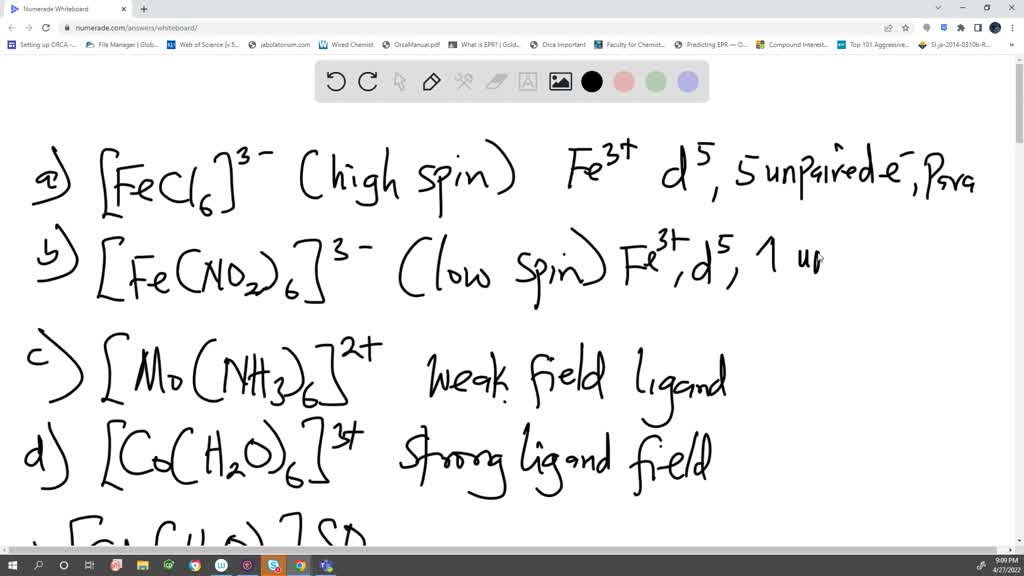 Numerade Whiteboard
numerade.com/answers/whiteboard/
Setting up ORCA -... File Manager | Glob... Web of Science [v.5... jabolatorium.com Wired Chemist OrcaManual.pdf What is EPR? | Gold... Orca Important Faculty for Chemist... Predicting EPR — O... Compound Interest:... Top 101 Aggressive... SI.ja-2014-0310b-R...
a) [FeCl₆]³⁻ (high spin) Fe³⁺ d⁵, 5 unpaired e⁻, Para
b) [Fe(NO₂)₆]³⁻ (low spin) Fe³⁺, d⁵, 1 up
c) [Mo(NH₃)₆]²⁺ weak field ligand
d) [Co(H₂O)₆]³⁺ strong ligand field
9:09 PM
4/27/2022